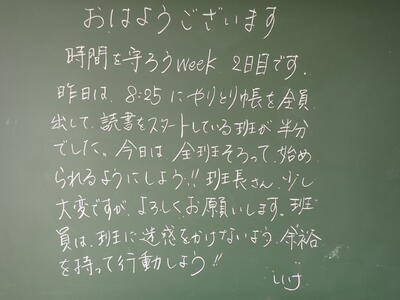 おはようございます
時間を守ろうweek 2日目です。
昨日は、8:25にやりとり帳を全員
出して、読書をスタートしている班が半分
でした。今日は、全班そろって、始め
られるようにしよう!!班長さん、少し
大変ですが、よろしくお願いします。班
員は、班に迷惑をかけないよう、余裕
を持って行動しよう!!